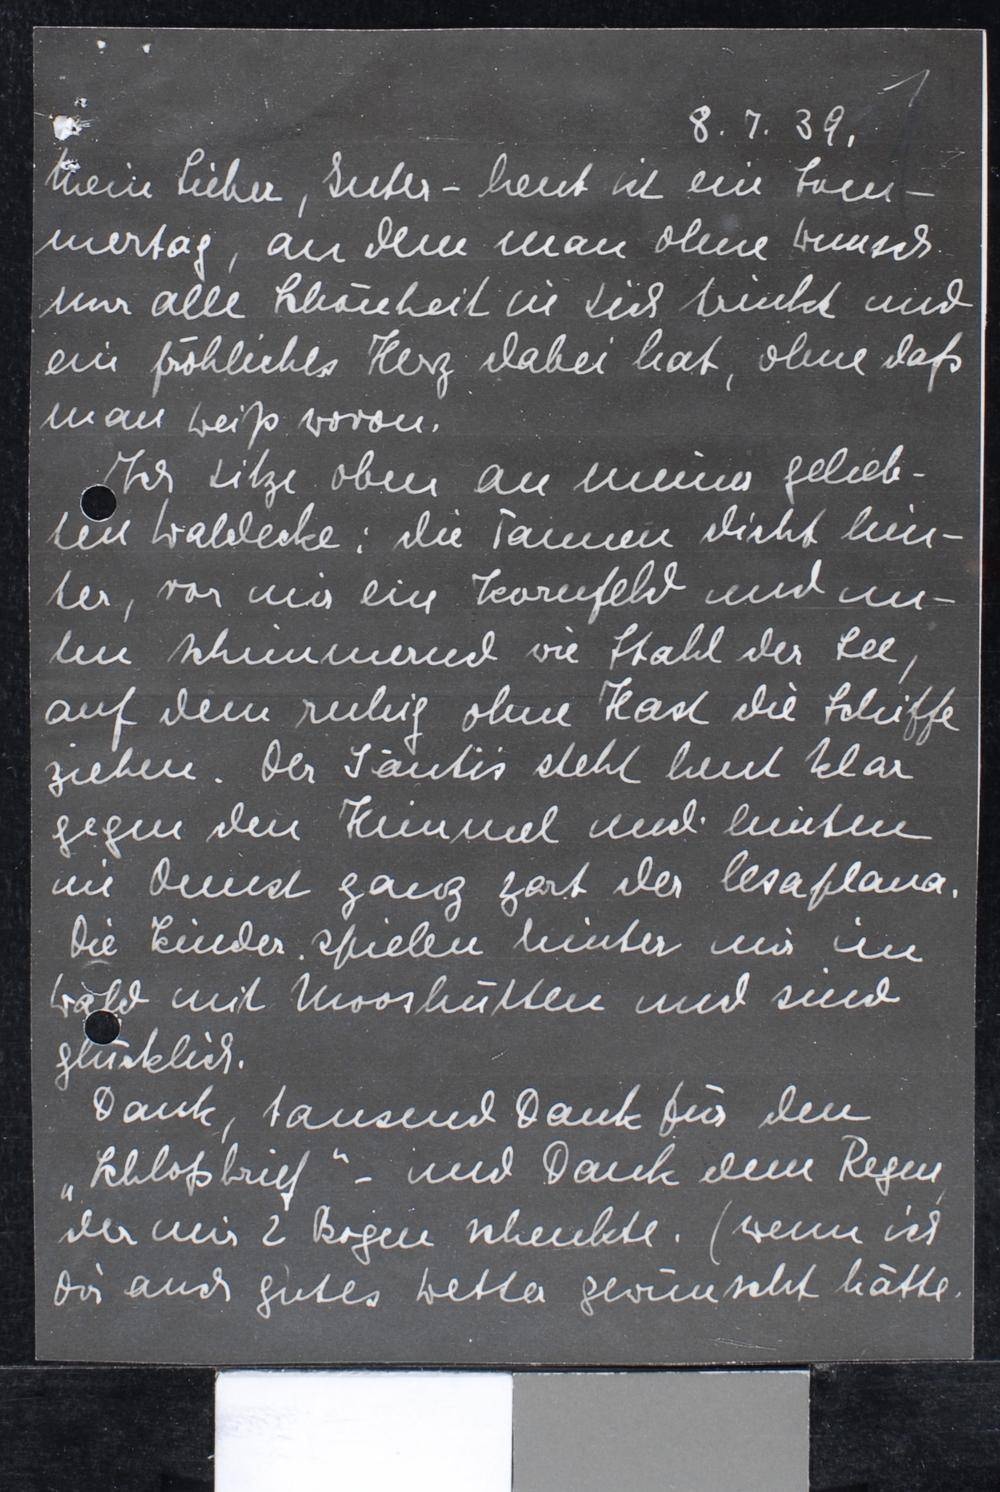 8.7.39.
Mein Lieber, Guter – heut ist ein Som-
mertag, an dem man ohne Wunsch
nur alle Schönheit in sich trinkt und
ein fröhliches Herz dabei hat, ohne daß
man weiß wovon.
Ich sitze oben an meiner gelieb-
ten Waldecke: die Tannen dicht hin-
ter, vor mir ein Kornfeld und un-
ten schimmernd wie Stahl der See,
auf dem ruhig ohne Hast die Schiffe
ziehen. Der Säntis steht heut klar
gegen den Himmel und hinten
im Dunst ganz zart der Cesaplana.
Die Kinder spielen hinter mir im
Wald mit Mooshütten und sind
glücklich.
Dank, tausend Dank für den
„Schloßbrief“ – und Dank dem Regen,
der mir 2 Bogen schenkte. (wenn ich
Dir auch gutes Wetter gewünscht hätte.